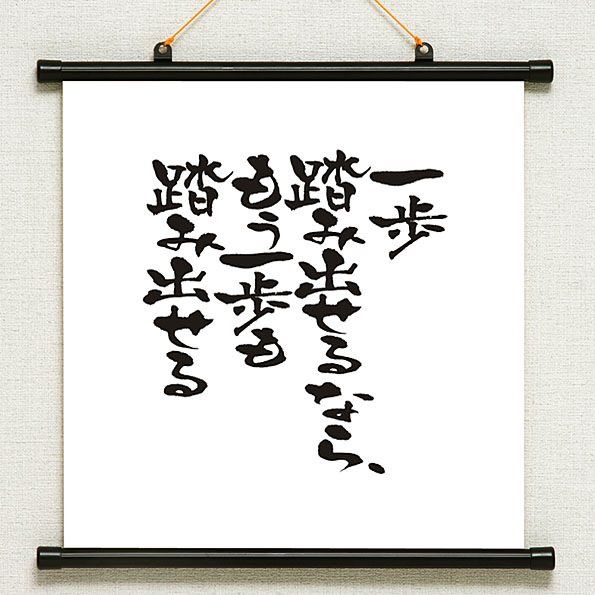 一歩
踏み出せるなら、
もう一歩も
踏み出せる